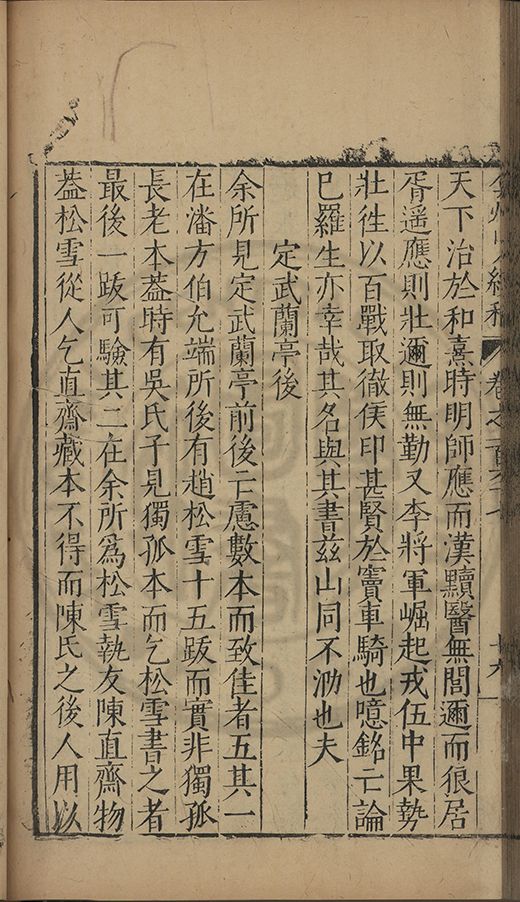 天下治於和熹時明師應而漢黷醫無閭邇而很居
胥遥應則壯邇則無勤又李將軍崛起戎伍中果埶
壯徃以百戰取徹侯印甚賢於竇車騎也噫銘亡論
巳羅生亦幸哉其名與其書兹山同不泐也夫
定武蘭亭後
余所見定武蘭亭前後亡慮數本而致佳者五其一
在潘方伯允端所後有趙松雪十五跋而實非獨孤
長老本葢時有吳氏子見獨孤本而乞松雪書之者
最後一跋可驗其二在余所爲松雪執友陳直齋物
葢松雪從人乞直齋藏本不得而陳氏之後人用以